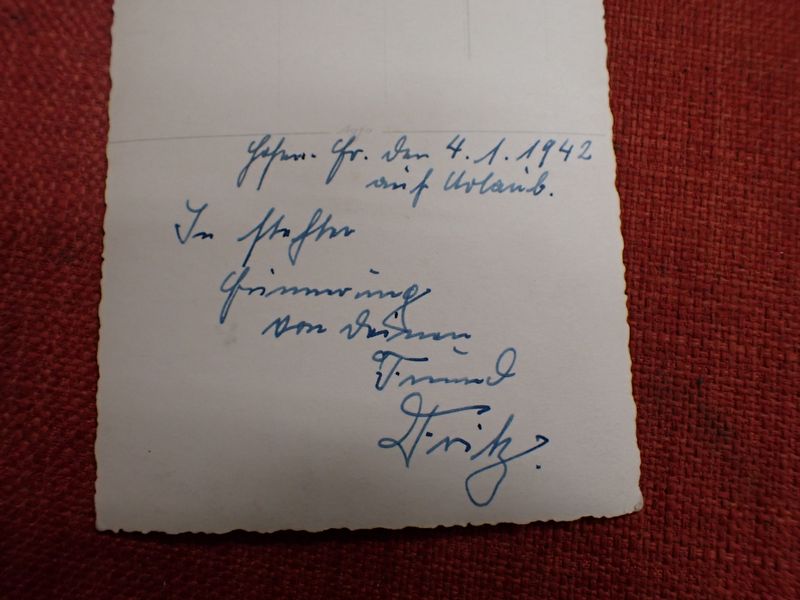 den 4.1.1942
auf Urlaub.
In stehter
Erinnerung
von deinen
Freund
Fritz.